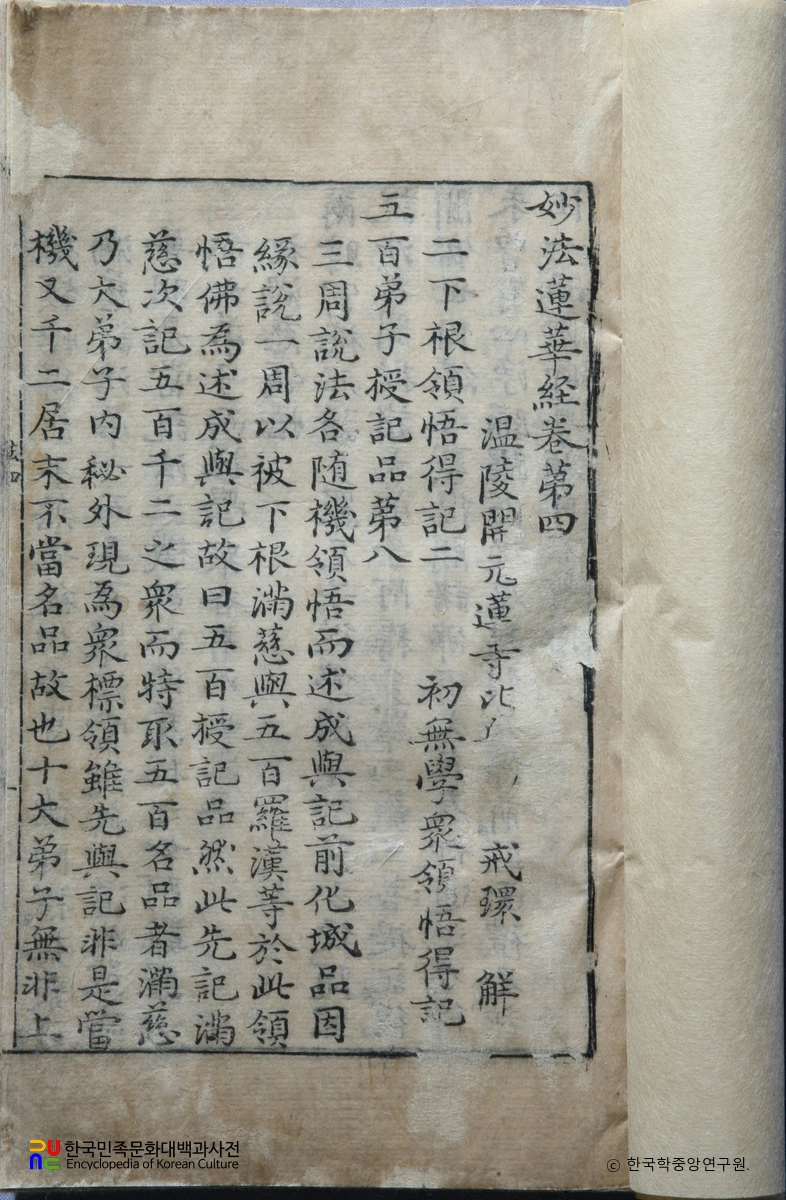 妙法蓮華経巻第四
温陵開元蓮寺比 戒環 解
二下根領悟得記二 初無學衆領悟得記
五百弟子授記品第八
三周說法各随機領悟而述成與記前化城品因
緣說一周以被下根滿慈與五百羅漢等於此領
悟佛為述成與記故曰五百授記品然此先記滿
慈次記五百千二之衆而特取五百名品者滿慈
乃大弟子內秘外現為衆標領雖先與記非是當
機又千二居末不當名品故也十大弟子無非上
한국민족문화대백과사전
Encyclopedia of Korean Culture
ⓒ 한국학중앙연구원.